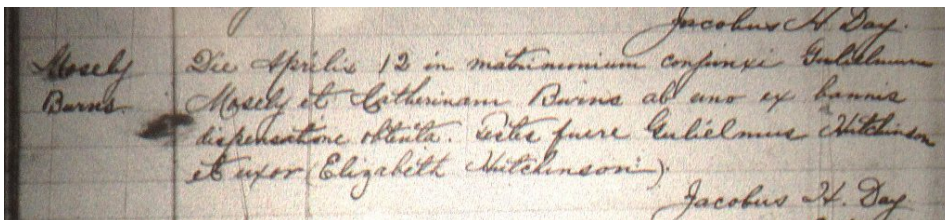 Jacobus H. Day.
Mosely Die Aprilis 12 in matrimonium conjunxi Gulielmum
Burns. Mosely et Catherinam Burns ab uno ex bannis
dispensatione obtenta. Testes fuere Gulielmus Hutchinson
et uxor (Elizabeth Hutchinson).
Jacobus H. Day